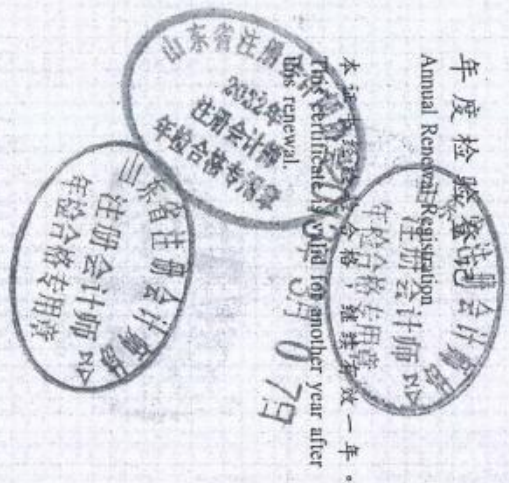 年度检验登记
Annual Renewal Registration
本证书经检验合格，继续有效一年。
This certificate is valid for another year after
this renewal.
山东省注册会计师
注册会计师
年检合格专用章
山东省注册会计师协会
注册会计师
年检合格专用章
注册会计师
注册会计师
年检合格专用章
3月07日